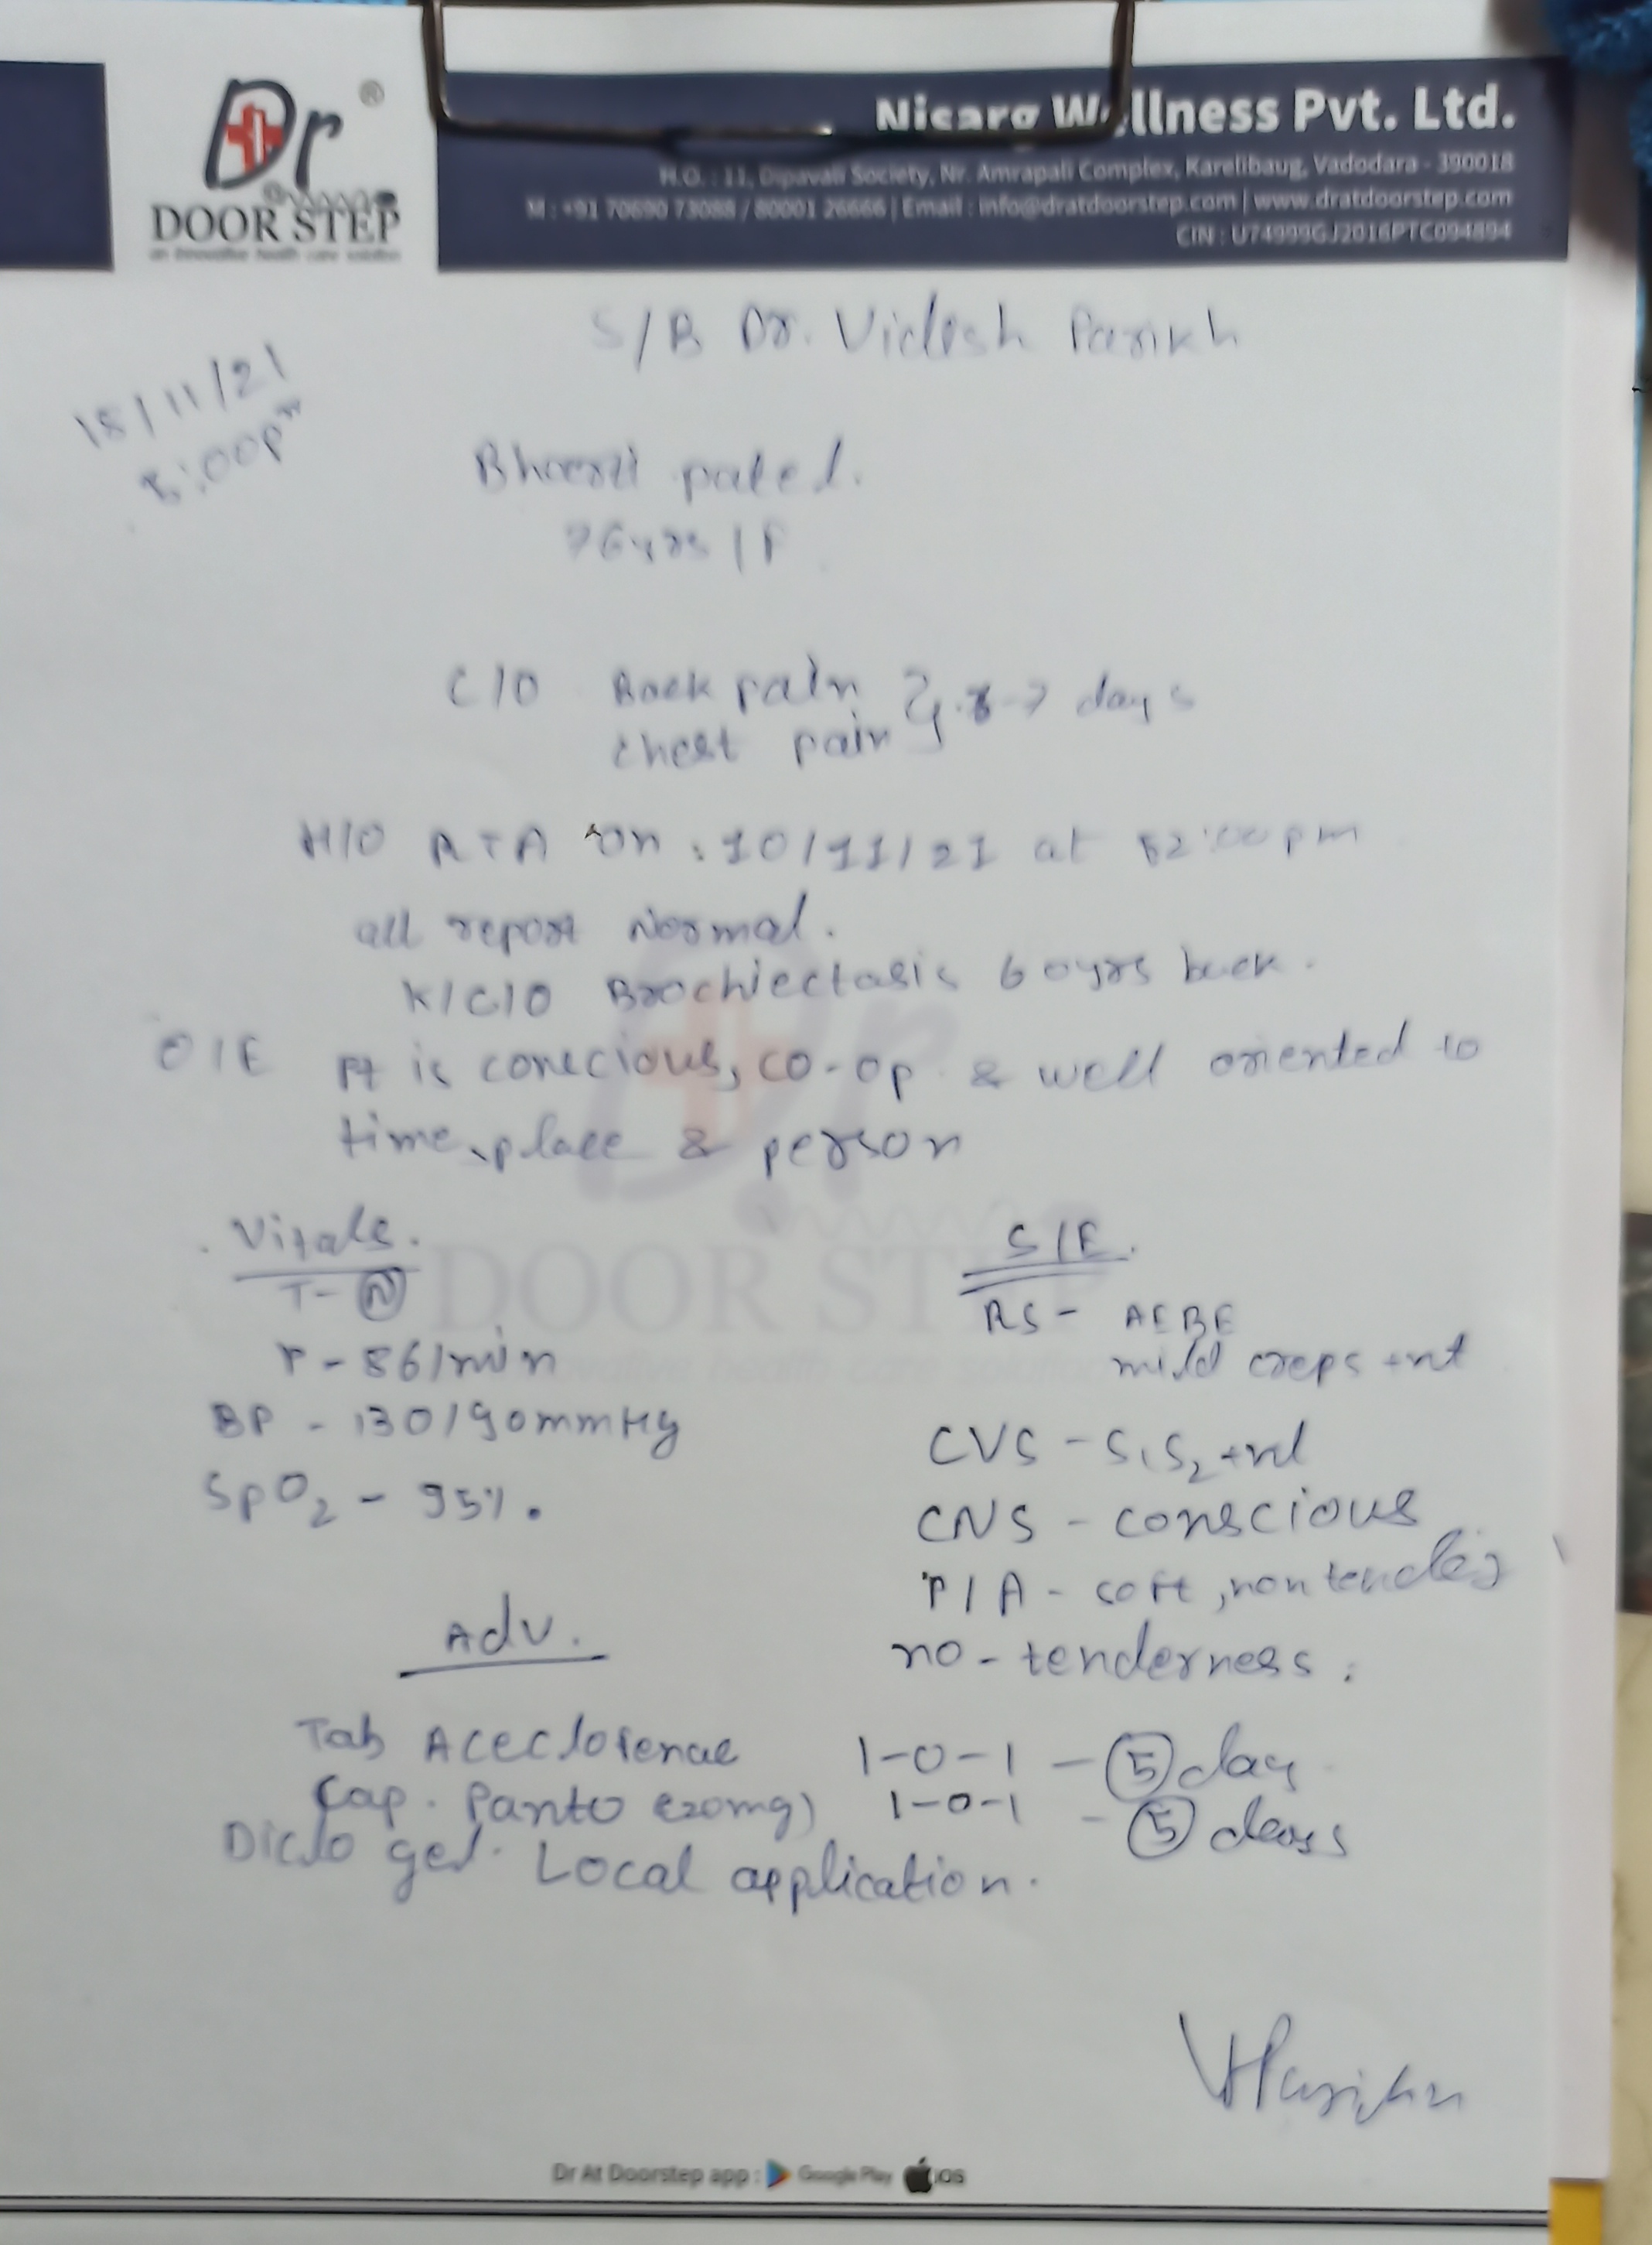 Dr ®
DOOR STEP
an innovative health care solution
Nisarg Wellness Pvt. Ltd.
H.O. : 11, Dipavali Society, Nr. Amrapali Complex, Karelibaug, Vadodara - 390018
M : +91 70690 73088 / 80001 26666 | Email : info@dratdoorstep.com | www.dratdoorstep.com
CIN : U74999GJ2016PTC094894
S/B Dr. Parikh
18/11/21
8:00pm
patel.
76yrs / F
C/O Back pain
chest pain 7 days
H/O RTA on 10/11/21 at :00pm
all report Normal.
K/C/O Brochiectasis 60yrs back.
O/E Pt is conscious, co-op & well oriented to
time, place & person
Vitals.
T - N
P - 86/min
BP - 130/90mmHg
SpO2 - 95%.
S/E.
RS - AEBE
mild creps +nt
CVS - S1S2 +nt
CNS - conscious
P/A - soft, non tender
no - tenderness.
Adv.
Tab Aceclofenac 1-0-1 - 5 day
Cap. Panto (20mg) 1-0-1 - 5 days
Diclo gel. Local application.
Dr At Doorstep app : Google Play iOS